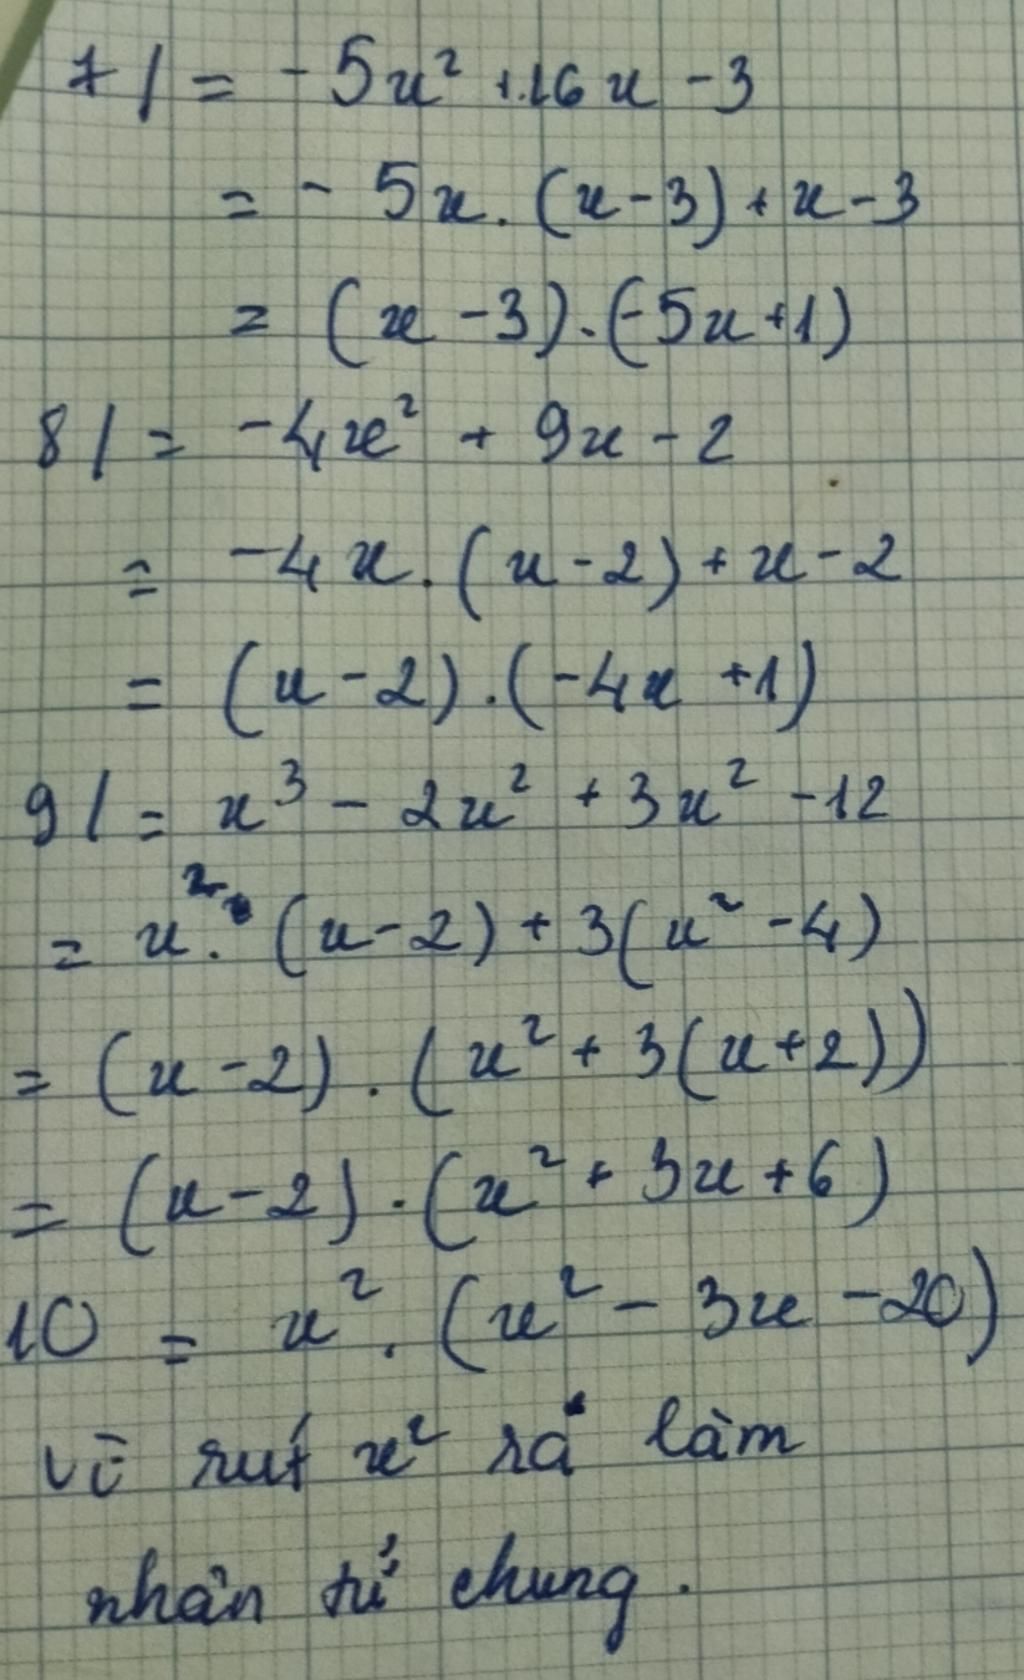 7/ = -5x² + 16x - 3
= - 5x. (x - 3) + x - 3
= (x - 3). (-5x + 1)
8/ = -4x² + 9x - 2
= -4x. (x - 2) + x - 2
= (x - 2). (-4x + 1)
9/ = x³ - 2x² + 3x² - 12
= x².(x - 2) + 3(x² - 4)
= (x - 2). (x² + 3(x + 2))
= (x - 2). (x² + 3x + 6)
10 = x². (x² - 3x - 20)
Vì rút x² ra làm
nhân tử chung.